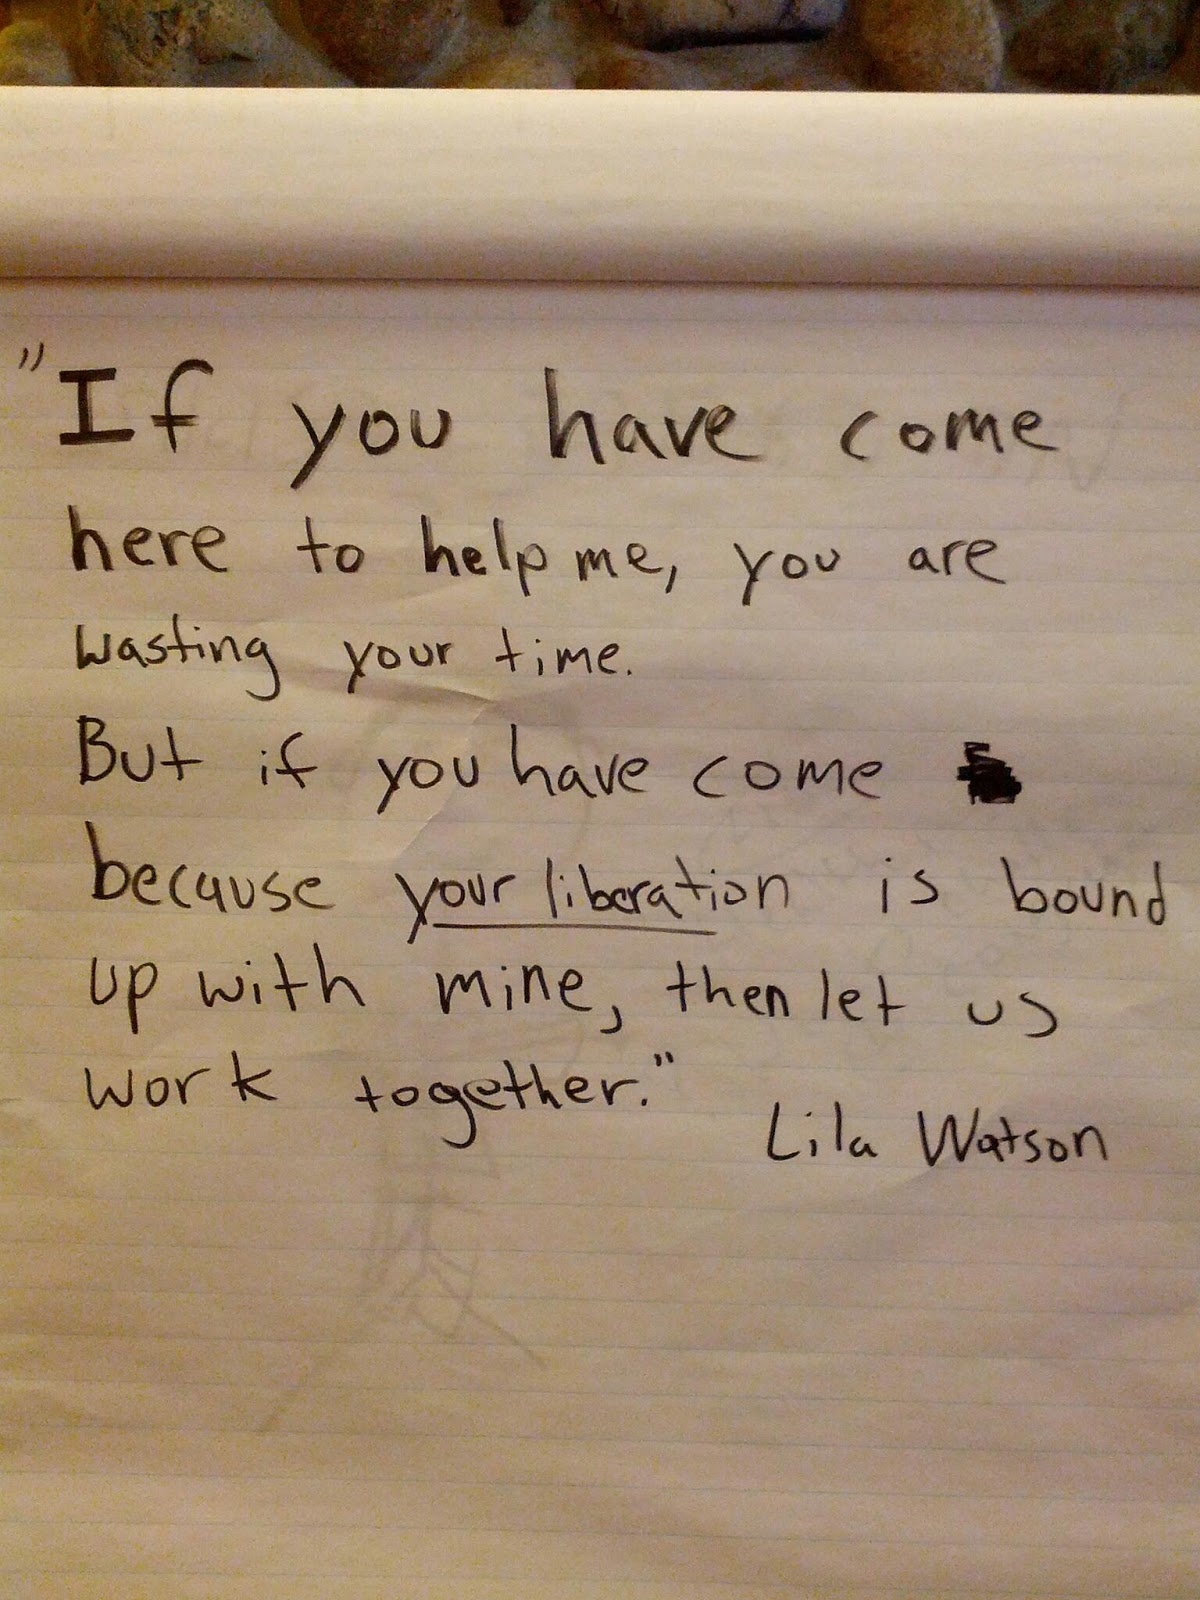 "If you have come
here to help me, you are
wasting your time.
But if you have come
because your liberation is bound
up with mine, then let us
work together."
Lila Watson